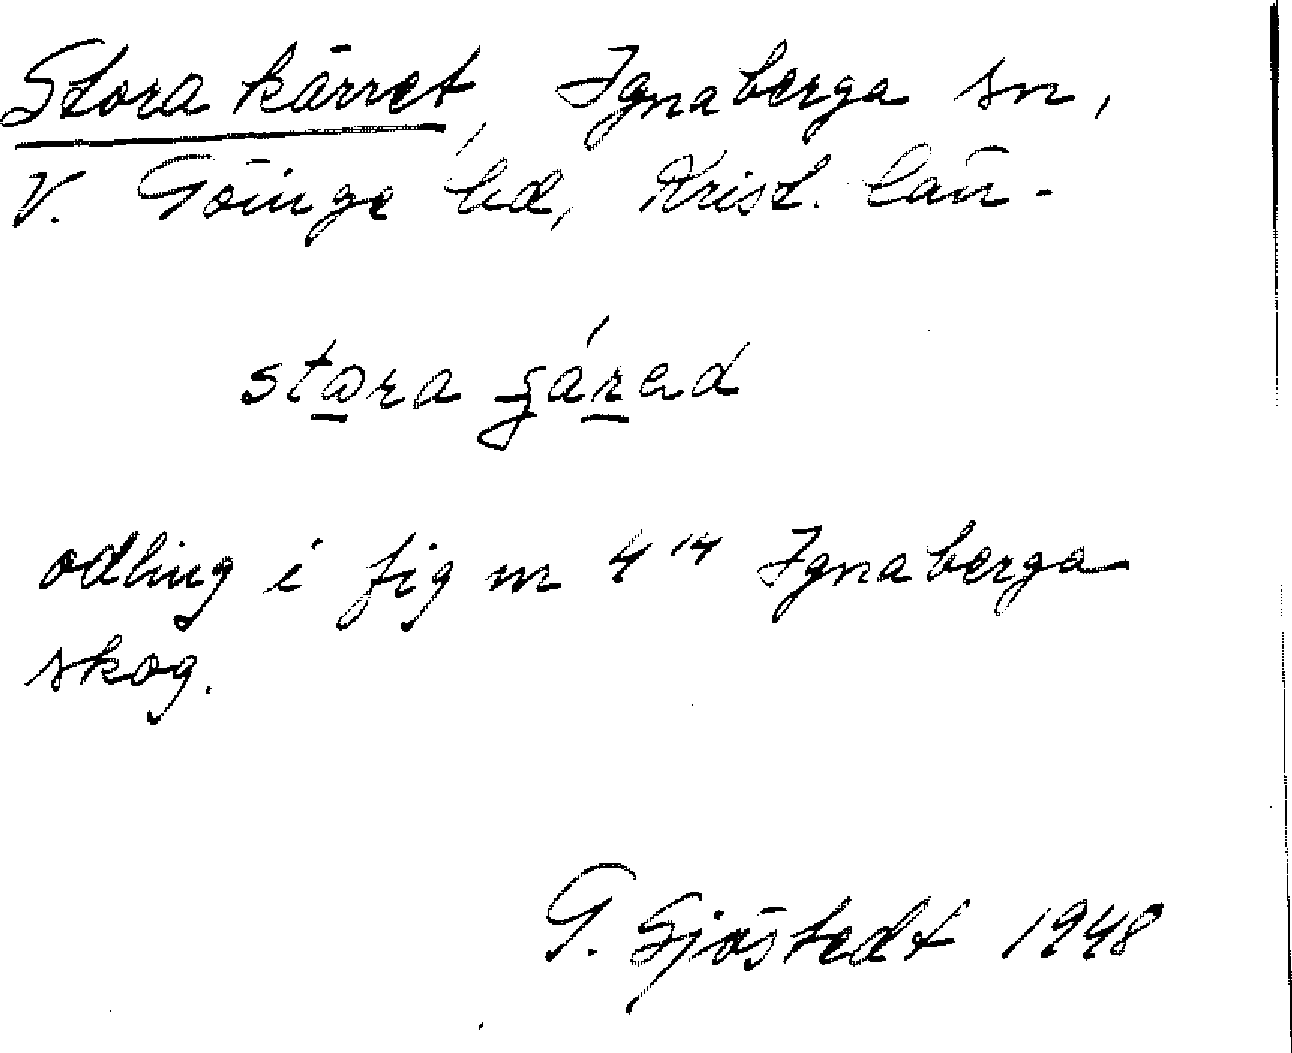 Stora kärret, Ignaberga sn,
V. Göinge hd, Krist. län.
stora
odling i fig nr 4¹⁴ Ignaberga
skog.
G. Sjöstedt 1948